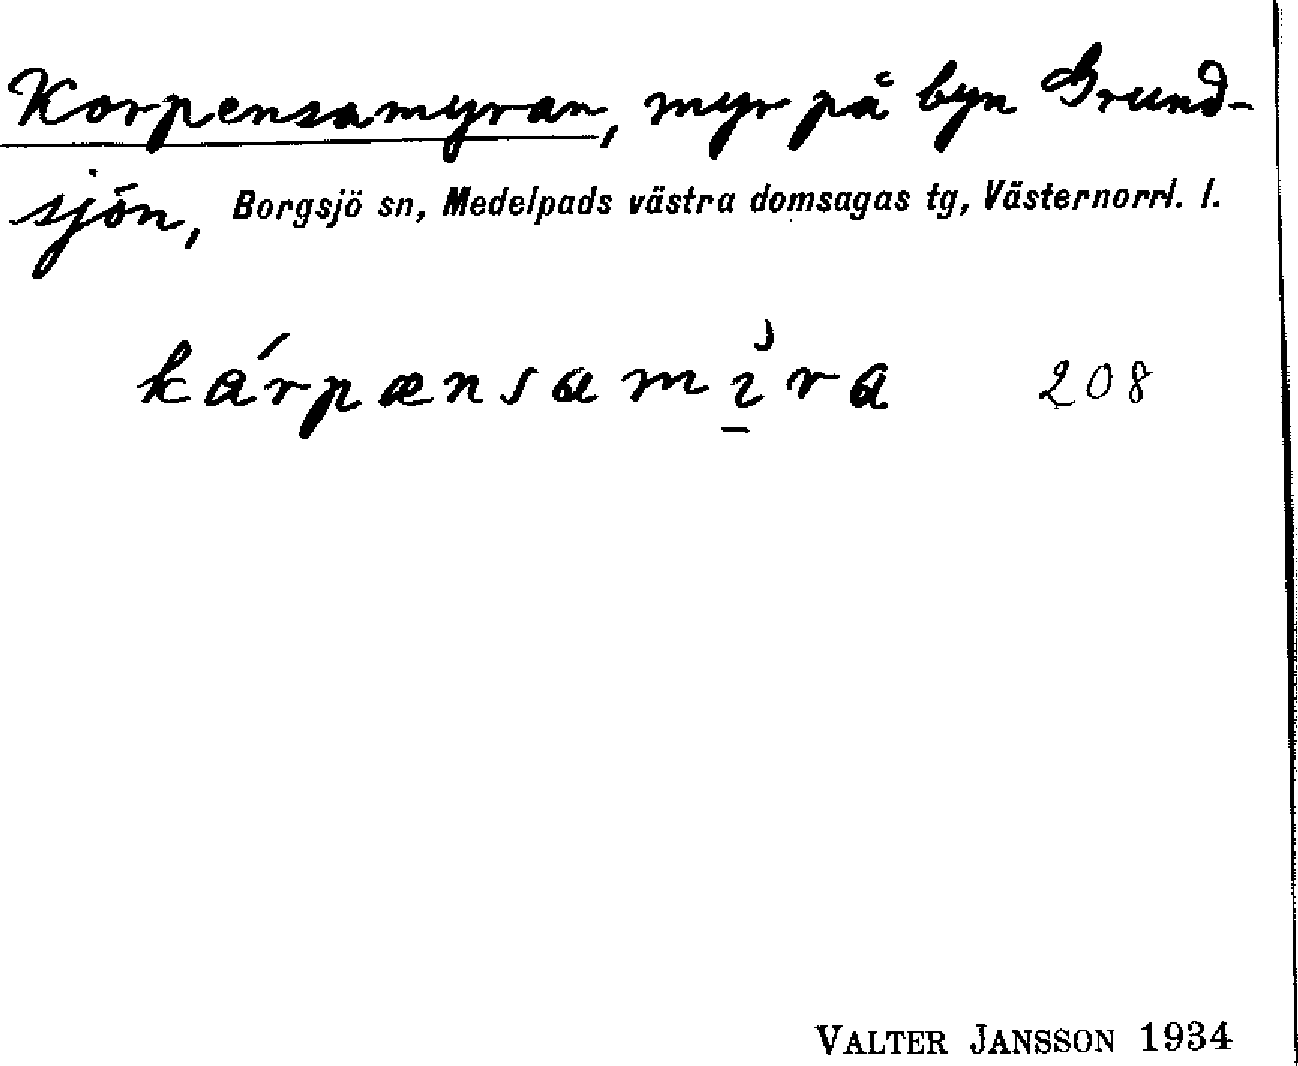 Korpensamyran, myr på byn Grund-
sjön, Borgsjö sn, Medelpads västra domsagas tg, Västernorrl. l.
kárpænsamı̠̉ra 208
VALTER JANSSON 1934